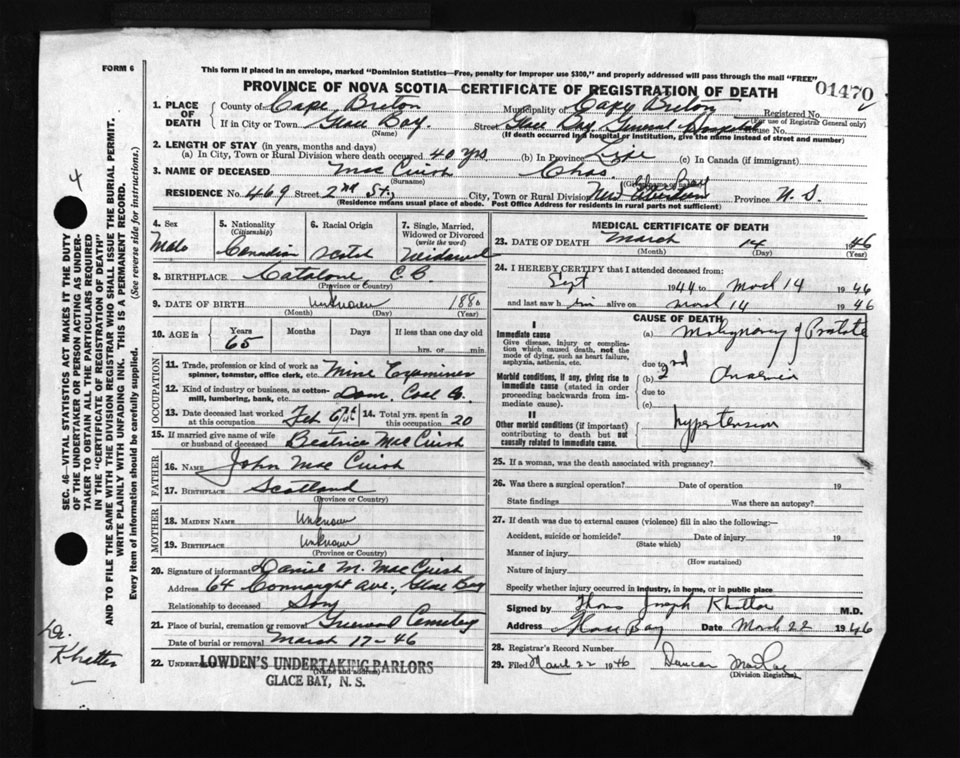 FORM 6
This form if placed in an envelope, marked "Dominion Statistics—Free, penalty for improper use $300," and properly addressed will pass through the mail "FREE"
PROVINCE OF NOVA SCOTIA—CERTIFICATE OF REGISTRATION OF DEATH
01470
1. PLACE OF DEATH
County of Cape Breton Municipality of Cape Breton Registered No.
(For use of Registrar General only)
If in City or Town Glace Bay. Street Glace Bay General Hospital House No.
(Name) (If death occurred in a hospital or institution, give its name instead of street and number)
2. LENGTH OF STAY (in years, months and days)
(a) In City, Town or Rural Division where death occurred 40 yrs (b) In Province Life (c) In Canada (if immigrant)
3. NAME OF DECEASED Mac Cuish Chas.
(Surname)
RESIDENCE No. 469 Street 2nd St., City, Town or Rural Division New Aberdeen Province N. S.
(Residence indicates usual place of abode. Post Office Address for residents in rural parts not sufficient)
4. Sex Male
5. Nationality (Citizenship) Canadian
6. Racial Origin Scotch
7. Single, Married, Widowed or Divorced (write the word) Widowed
8. BIRTHPLACE Catalone, C. B
(Province or Country)
9. DATE OF BIRTH unknown 188
(Month) (Day) (Year)
10. AGE in Years 65 Months Days If less than one day old hrs. or min
OCCUPATION
11. Trade, profession or kind of work as spinner, teamster, office clerk, etc. Mine Examiner
12. Kind of industry or business, as cotton-mill, lumbering, bank, etc. Dom. Coal Co.
13. Date deceased last worked at this occupation Feb
14. Total yrs. spent in this occupation 20
15. If married give name of wife or husband of deceased Beatrice Mac Cuish
FATHER
16. NAME John Mac Cuish
17. BIRTHPLACE Scotland
(Province or Country)
MOTHER
18. MAIDEN NAME Unknown
19. BIRTHPLACE unknown
(Province or Country)
20. Signature of informant Daniel M. Mac Cuish
Address 64 Connaught Ave., Glace Bay
Relationship to deceased Son
21. Place of burial, cremation or removal Greenwood Cemetery
Date of burial or removal March 17-46
22. UNDERTAKER LOWDEN'S UNDERTAKING PARLORS
(Name and address)
GLACE BAY, N. S.
MEDICAL CERTIFICATE OF DEATH
23. DATE OF DEATH March 14 1946
(Month) (Day) (Year)
24. I HEREBY CERTIFY that I attended deceased from:
Sept 1944 to March 14 1946
and last saw h im alive on March 14 1946
CAUSE OF DEATH
I
Immediate cause
Give disease, injury or complication which caused death, not the mode of dying, such as heart failure, asphyxia, asthenia, etc.
(a) Malignancy of Prostate
due to
Morbid conditions, if any, giving rise to immediate cause (stated in order proceeding backwards from immediate cause).
(b) 2nd Anaemia
due to
(c)
II
Other morbid conditions (if important) contributing to death but not causally related to immediate cause.
Hypertension
25. If a woman, was the death associated with pregnancy?
26. Was there a surgical operation? Date of operation 19
State findings Was there an autopsy?
27. If death was due to external causes (violence) fill in also the following:—
Accident, suicide or homicide? Date of injury 19
(State which)
Manner of injury
(How sustained)
Nature of injury
Specify whether injury occurred in industry, in home, or in public place
Signed by Thomas Joseph Khattar M.D.
Address Glace Bay Date March 22 1946
28. Registrar's Record Number
29. Filed March 22 1946 Duncan MacRae
(Division Registrar)
SEC. 46—VITAL STATISTICS ACT MAKES IT THE DUTY
OF THE UNDERTAKER OR PERSON ACTING AS UNDER-
TAKER TO OBTAIN ALL THE PARTICULARS REQUIRED
IN THE "CERTIFICATE OF REGISTRATION OF DEATH"
AND TO FILE THE SAME WITH THE DIVISION REGISTRAR WHO SHALL ISSUE THE BURIAL PERMIT.
WRITE PLAINLY WITH UNFADING INK. THIS IS A PERMANENT RECORD.
Every item of information should be carefully supplied. (See reverse side for instructions.)
4
Dr.
Khatter